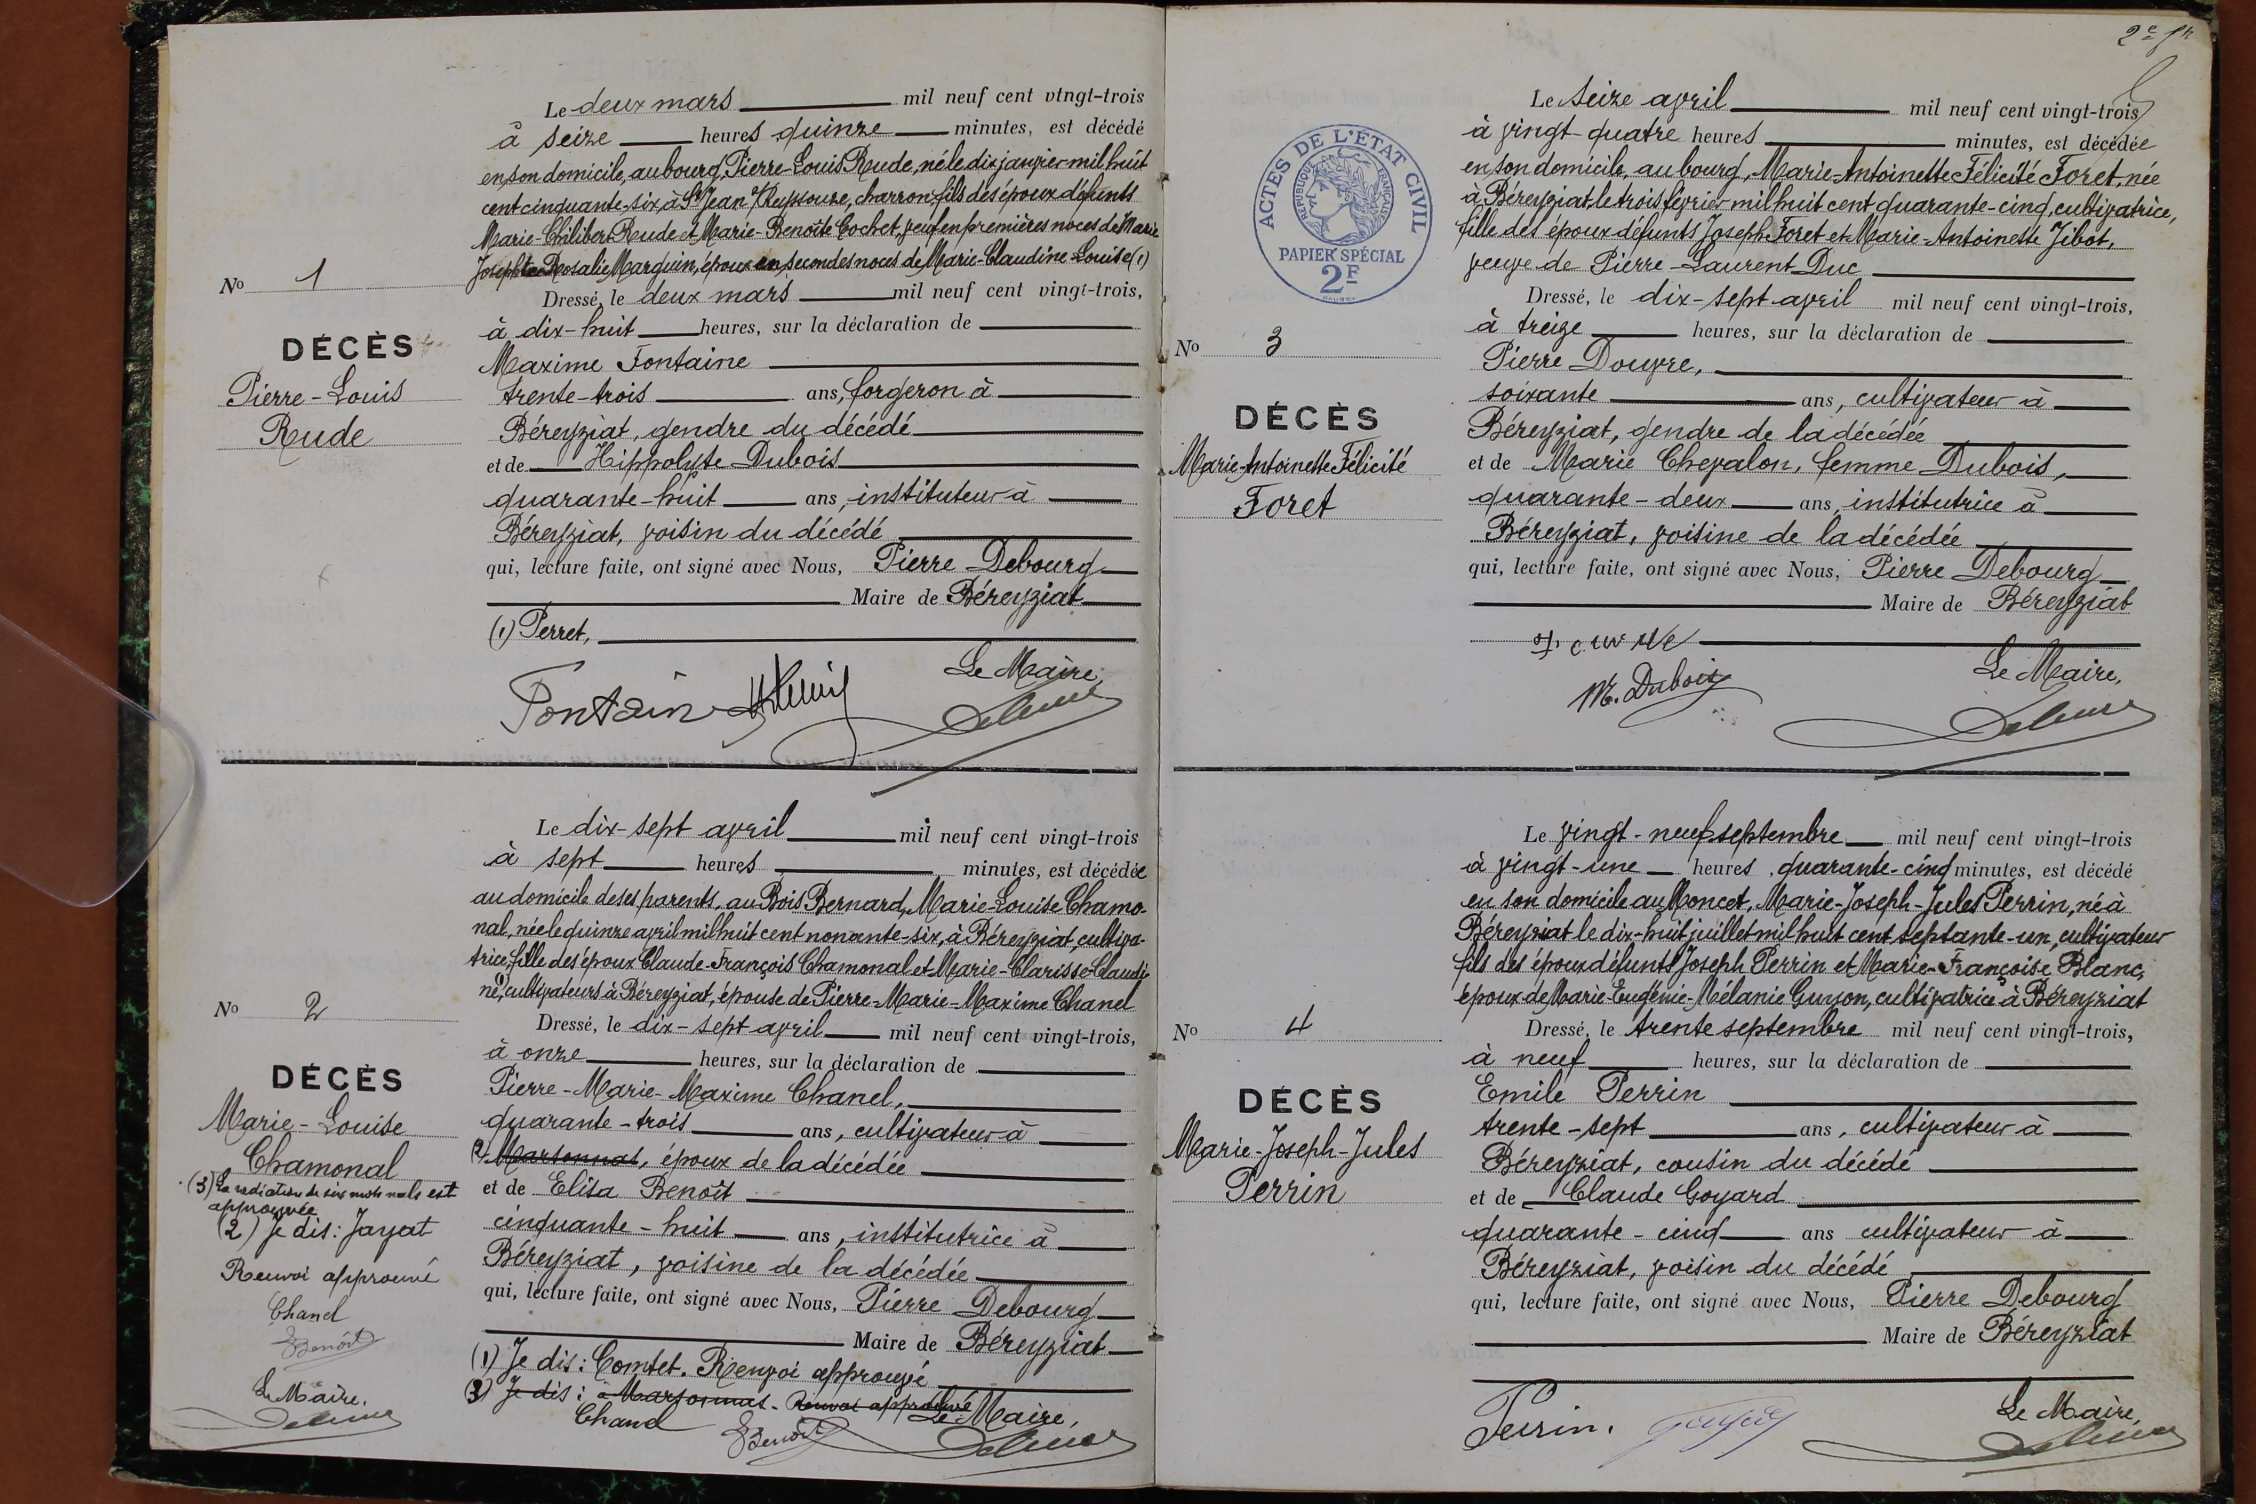 Le deux mars mil neuf cent vingt-trois
à seize heures quinze minutes, est décédé
en son domicile, au bourg, Pierre-Louis Rude, né le dix janvier mil huit
cent cinquante-six, à St Jean s/Reyssouze, charron, fils des époux défunts
Marie-Philibert Rude et Marie-Benoîte Cochet, veuf en premières noces de Marie
Josephte Rosalie Marguin, époux en secondes noces de Marie-Claudine-Louise (1)
No 1
Dressé, le deux mars mil neuf cent vingt-trois,
à dix-huit heures, sur la déclaration de
DÉCÈS
Maxime Fontaine
Pierre-Louis
trente-trois ans, forgeron à
Rude
Béreyziat, gendre du décédé
et de Hippolyte Dubois
quarante-huit ans, instituteur à
Béreyziat, voisin du décédé
qui, lecture faite, ont signé avec Nous, Pierre Debourg
Maire de Béreyziat
(1) Perret,
Le Maire,
Fontain
Le dix-sept avril mil neuf cent vingt-trois
à sept heures minutes, est décédée
au domicile de ses parents, au Bois Bernard, Marie-Louise Chamo-
nal, née le quinze avril mil huit cent nonante-six, à Béreyziat, cultiva-
trice, fille des époux Claude-François Chamonal et Marie-Clarisse-Claudi-
ne (1), cultivateurs à Béreyziat, épouse de Pierre-Marie-Maxime Chanel
No 2
Dressé, le dix-sept avril mil neuf cent vingt-trois,
à onze heures, sur la déclaration de
DÉCÈS
Pierre-Marie-Maxime Chanel,
Marie-Louise
quarante-trois ans, cultivateur à
Chamonal
(2) Marsonnas, époux de la décédée
(3) La radiation de six mots nuls est
approuvée
et de Elisa Benoît
(2) Je dis: Jayat
cinquante-huit ans, institutrice à
Renvoi approuvé
Béreyziat, voisine de la décédée
Chanel
qui, lecture faite, ont signé avec Nous, Pierre Debourg
Benoît
Maire de Béreyziat
Le Maire,
(1) Je dis: Comtet. Renvoi approuvé
(3) Je dis: à Marsonnas. Renvoi approuvé
Le Maire,
Chanel
Benoît
2e
Le seize avril mil neuf cent vingt-trois
à vingt-quatre heures minutes, est décédée
en son domicile, au bourg, Marie-Antoinette Félicité Foret, née
à Béreyziat le trois février mil huit cent quarante-cinq, cultivatrice,
fille des époux défunts Joseph Foret et Marie-Antoinette Jibot,
veuve de Pierre-Laurent Duc
ACTES DE L'ETAT CIVIL
REPUBLIQUE FRANÇAISE
PAPIER SPÉCIAL
2F
Dressé, le dix-sept avril mil neuf cent vingt-trois,
à treize heures, sur la déclaration de
No 3
Pierre Douvre,
DÉCÈS
soixante ans, cultivateur à
Béreyziat, gendre de la décédée
Marie-Antoinette Félicité
et de Marie Chevalon, femme Dubois,
Foret
quarante-deux ans, institutrice à
Béreyziat, voisine de la décédée
qui, lecture faite, ont signé avec Nous, Pierre Debourg
Maire de Béreyziat
Le Maire,
M. Dubois
Le vingt-neuf septembre mil neuf cent vingt-trois
à vingt-une heures quarante-cinq minutes, est décédé
en son domicile au Moncet, Marie-Joseph-Jules Perrin, né à
Béreyziat le dix-huit juillet mil huit cent septante-un, cultivateur
fils des époux défunts Joseph Perrin et Marie-Françoise Blanc,
époux de Marie-Eugénie-Mélanie Guyon, cultivatrice à Béreyziat
No 4
Dressé, le trente septembre mil neuf cent vingt-trois,
à neuf heures, sur la déclaration de
DÉCÈS
Emile Perrin
Marie-Joseph-Jules
trente-sept ans, cultivateur à
Perrin
Béreyziat, cousin du décédé
et de Claude Goyard
quarante-cinq ans cultivateur à
Béreyziat, voisin du décédé
qui, lecture faite, ont signé avec Nous, Pierre Debourg
Maire de Béreyziat
Perrin.
Le Maire,